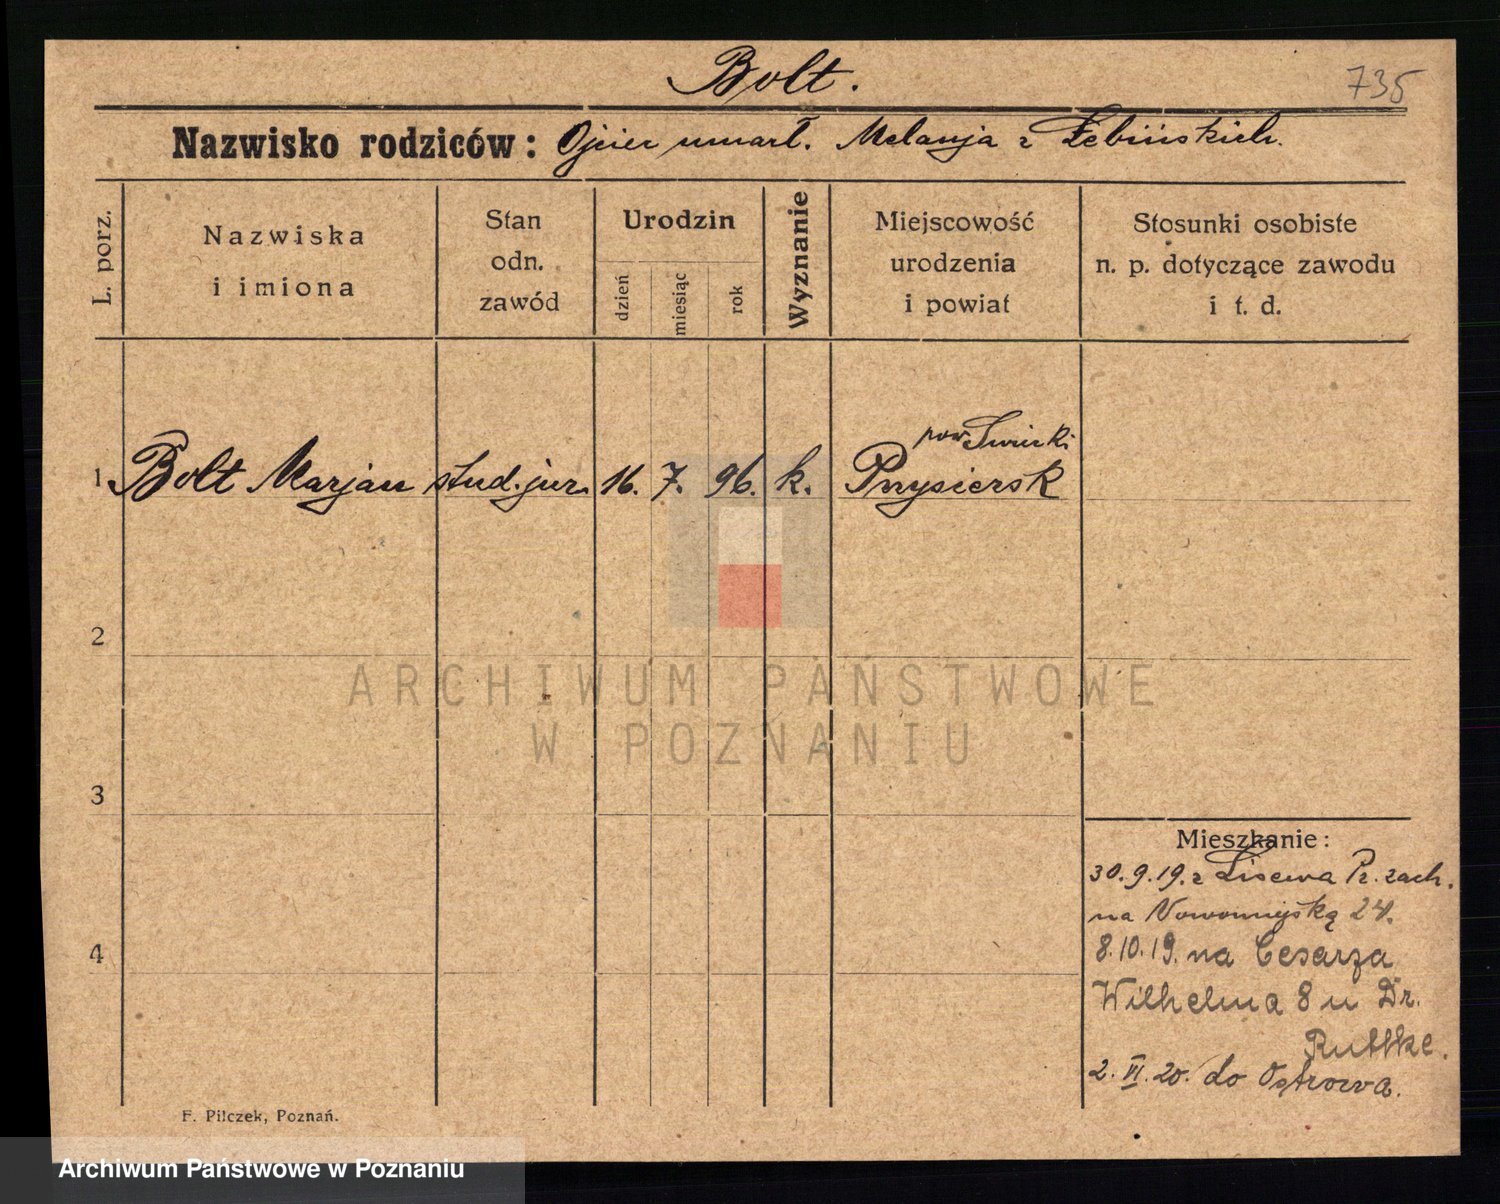 Bolt.
735
Nazwisko rodziców: Ojciec umarł. Melanja z Łebińskich.
L. porz.
Nazwiska
i imiona
Stan
odn.
zawód
Urodzin
dzień
miesiąc
rok
Wyznanie
Miejscowość
urodzenia
i powiat
Stosunki osobiste
n. p. dotyczące zawodu
i t. d.
pow. Świecki
1 Bolt Marjan stud. jur. 16. 7. 96. k. Przysiersk
2
ARCHIWUM PAŃSTWOWE
W POZNANIU
3
Mieszkanie:
30.9.19. z Lisewa Pr. zach.
na Nowomiejską 24.
4
8.10.19. na Cesarza
Wilhelma 8 u Dr.
2. VI. 20. do Ostrowa.
F. Pilczek, Poznań.
Archiwum Państwowe w Poznaniu